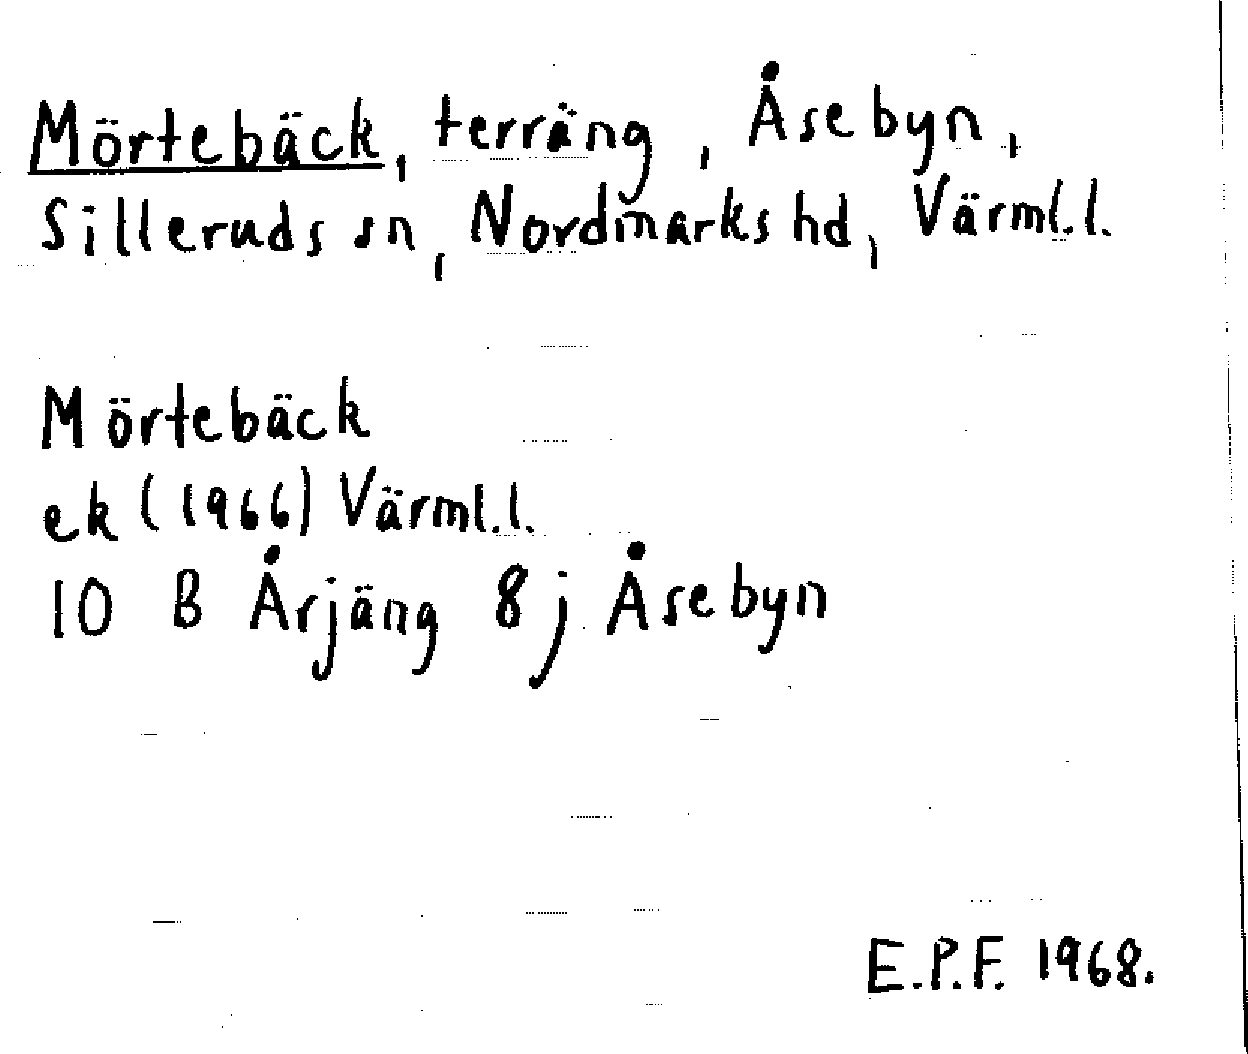 Mörtebäck, terräng, Åsebyn,
Silleruds sn, Nordmarks hd, Värml.l.
Mörtebäck
ek (1966) Värml.l.
10 B Årjäng 8 j Åsebyn
E.P.F. 1968.